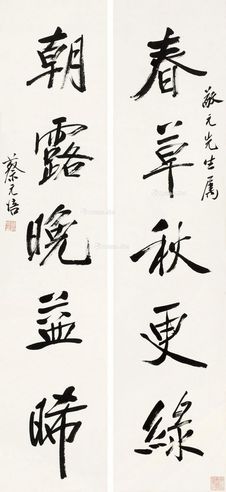 春草秋更綠
敬元先生属
朝露晚益晞
蔡元培